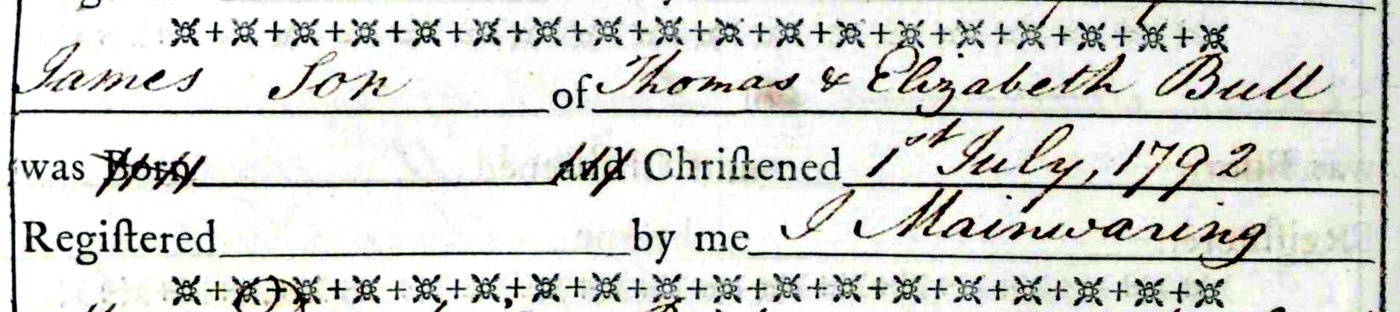 James Son of Thomas & Elizabeth Bull
was Born and Chriſtened 1st July, 1792
Regiſtered by me J Mainwaring